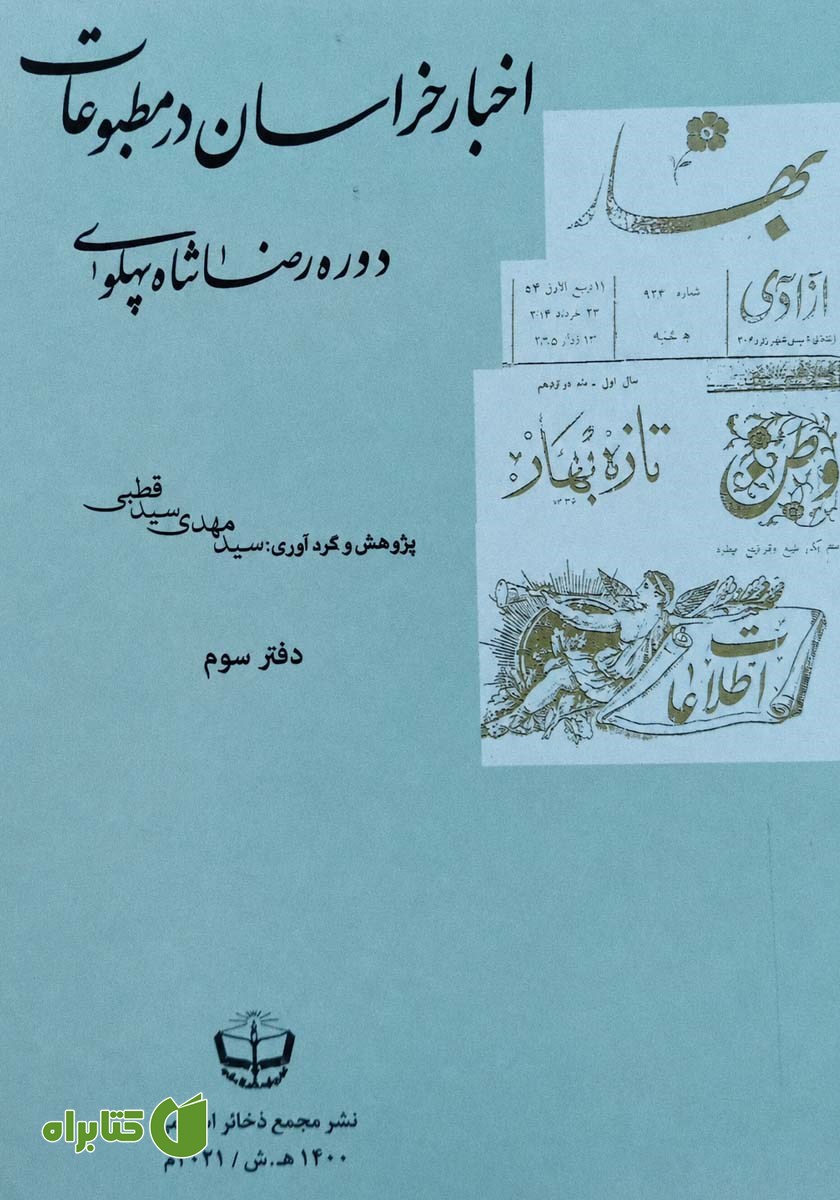 اخبار خراسان در مطبوعات
دوره رضا شاه پهلوی
بهار
آزادی
شماره ۹۳۴
۱۱ ربیع الاول ۵۴
۲۳ خرداد ۳۱۴
سال اول -
وطن
تازه بهار
۱۳۳۶
اطلاعات
پژوهش و گردآوری: سید مهدی سید قطبی
دفتر سوم
نشر مجمع ذخائر
۱۴۰۰ هـ.ش / ۲۰۲۱م
کتابراه